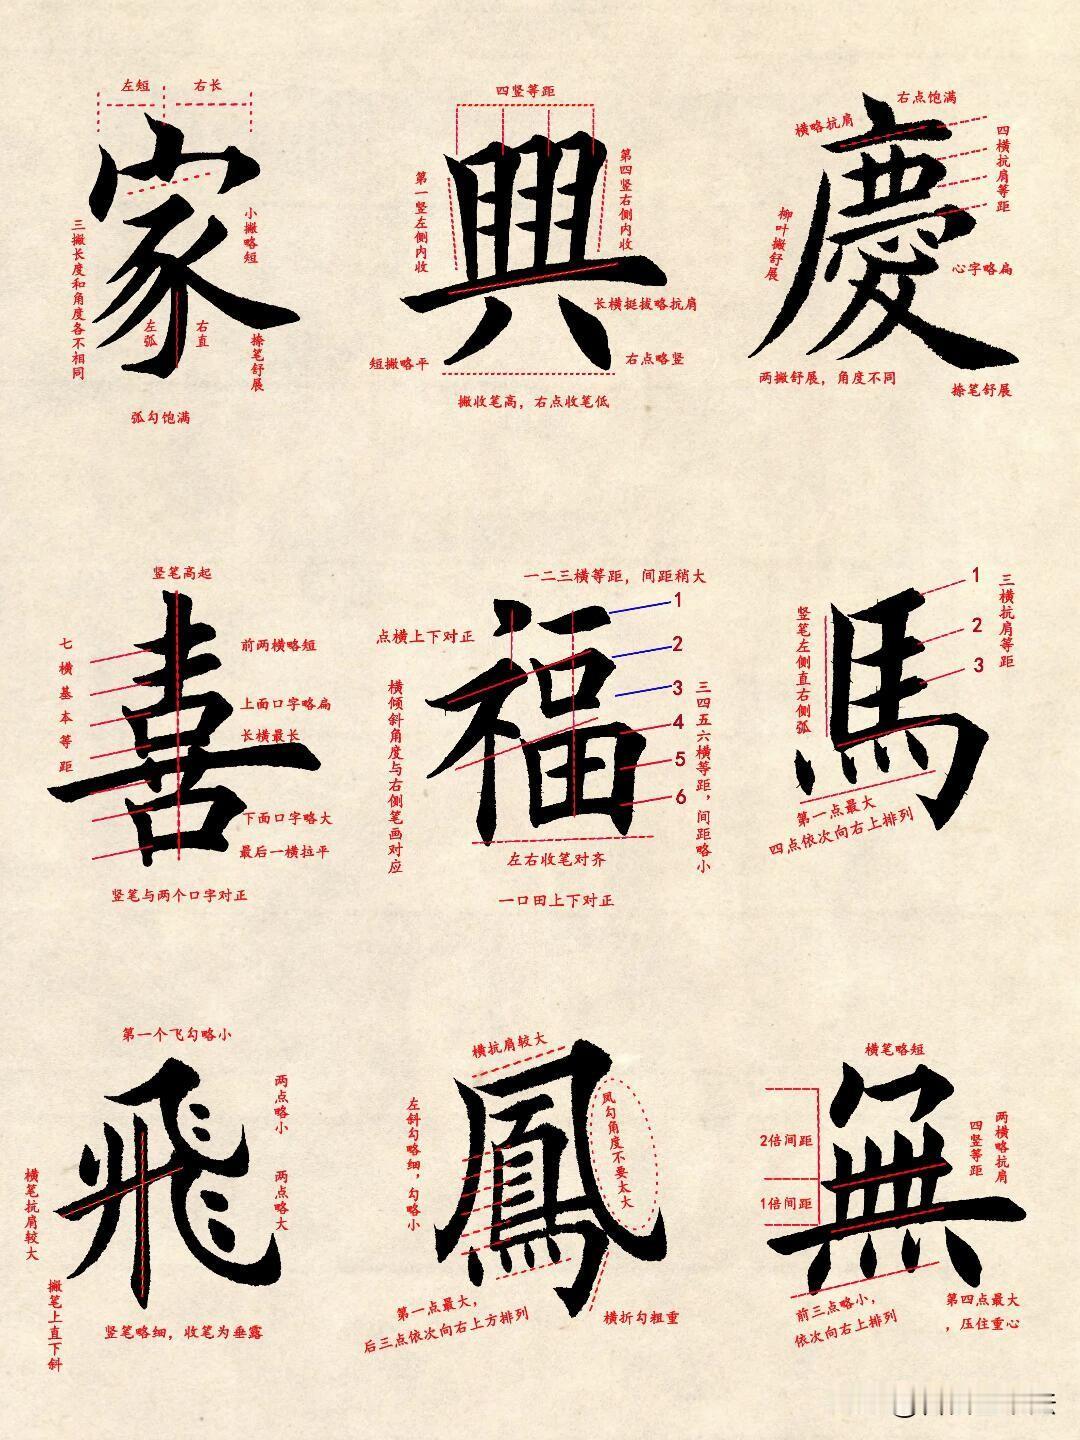 左短
右长
家
小撇略短
三撇长度和角度各不相同
左弧
右直
捺笔舒展
弧勾饱满
四竖等距
第一竖左侧内收
第四竖右侧内收
興
长横挺拔略抗肩
短撇略平
右点略竖
撇收笔高，右点收笔低
右点饱满
横略抗肩
四横抗肩等距
慶
柳叶撇舒展
心字略扁
两撇舒展，角度不同
捺笔舒展
竖笔高起
七横基本等距
喜
前两横略短
上面口字略扁
长横最长
下面口字略大
最后一横拉平
竖笔与两个口字对正
一二三横等距，间距稍大
点横上下对正
福
1
2
3
4
5
6
横倾斜角度与右侧笔画对应
三四五六横等距，间距略小
左右收笔对齐
一口田上下对正
竖笔左侧直右侧弧
馬
1
2
3
三横抗肩等距
第一点最大
四点依次向右上排列
第一个飞勾略小
飛
两点略小
两点略大
横笔抗肩较大
撇笔上直下斜
竖笔略细，收笔为垂露
横抗肩较大
左斜勾略细，勾略小
鳳
凤勾角度不要太大
第一点最大，
后三点依次向右上方排列
横折勾粗重
横笔略短
無
2倍间距
1倍间距
四竖等距
两横略抗肩
前三点略小，
依次向右上排列
第四点最大
，压住重心